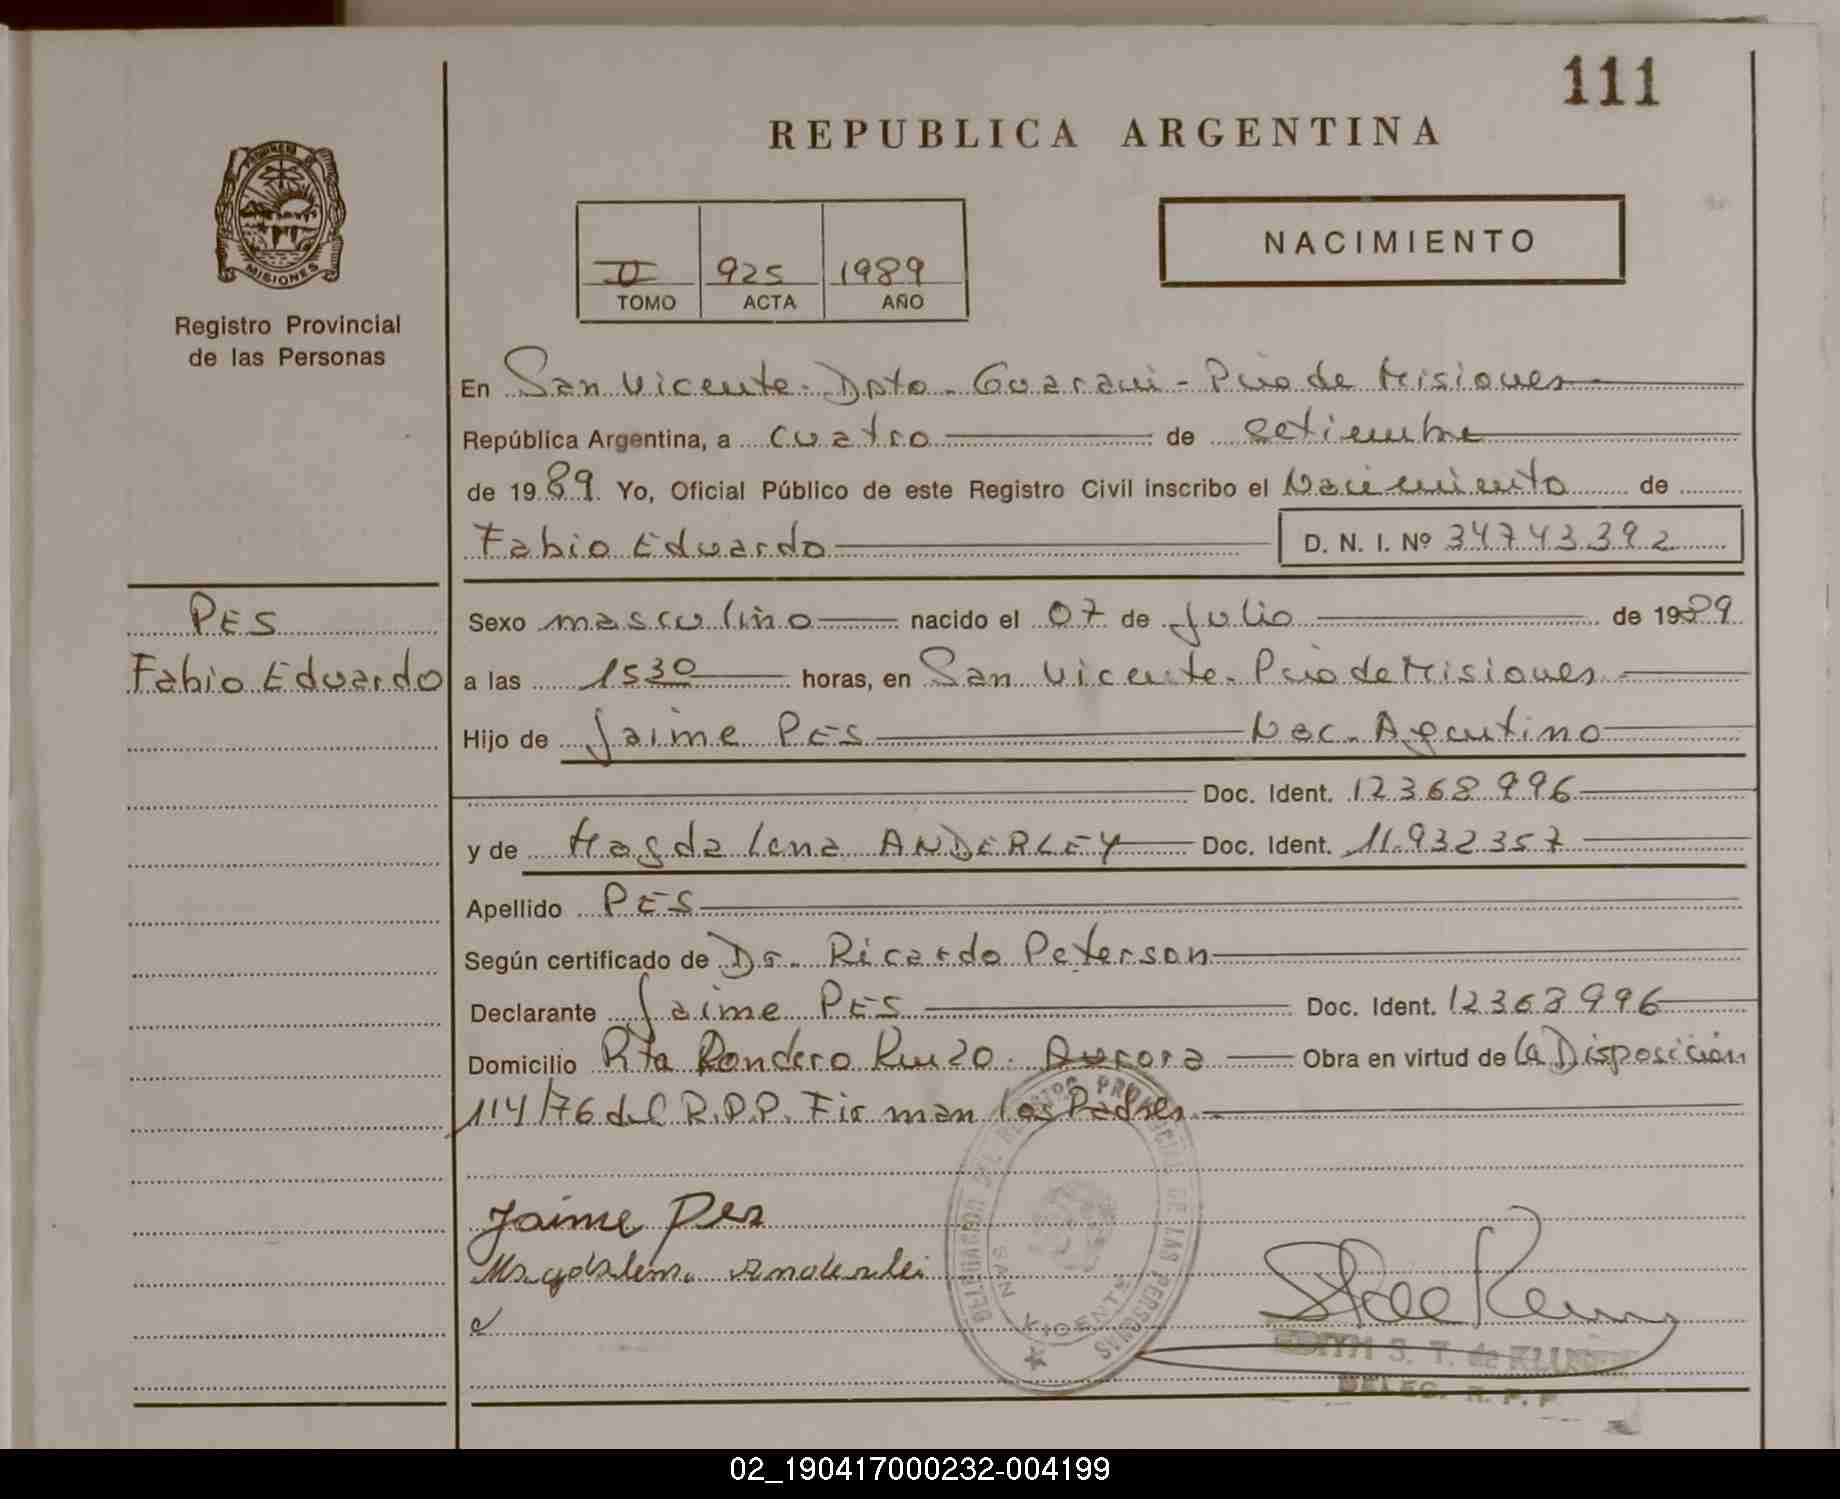 111
REPUBLICA ARGENTINA
PROVINCIA DE
MISIONES
Registro Provincial
de las Personas
II 925 1989
TOMO ACTA AÑO
NACIMIENTO
En San Vicente - Dpto - Guarani - Pcia de Misiones
República Argentina, a cuatro de setiembre
de 1989. Yo, Oficial Público de este Registro Civil inscribo el Nacimiento de
Fabio Eduardo D. N. I. Nº 34743392
PES
Fabio Eduardo
Sexo masculino nacido el 07 de Julio de 1989
a las 1530 horas, en San Vicente - Pcia de Misiones
Hijo de Jaime PES Nac. Argentino
Doc. Ident. 12368996
y de Magdalena ANDERLEY Doc. Ident. 11.932357
Apellido PES
Según certificado de Dr. Ricardo Peterson
Declarante Jaime PES Doc. Ident. 12368996
Domicilio Pta Aurora Obra en virtud de La Disposición
114/76 del R.P.P. Firman los Padres
Jaime Pes
Magdalena Anderlei
DELEGACION DEL REGISTRO PROVINCIAL DE LAS PERSONAS
SAN VICENTE
EDITH S. T. de
DELEG. R. P. P
02_190417000232-004199